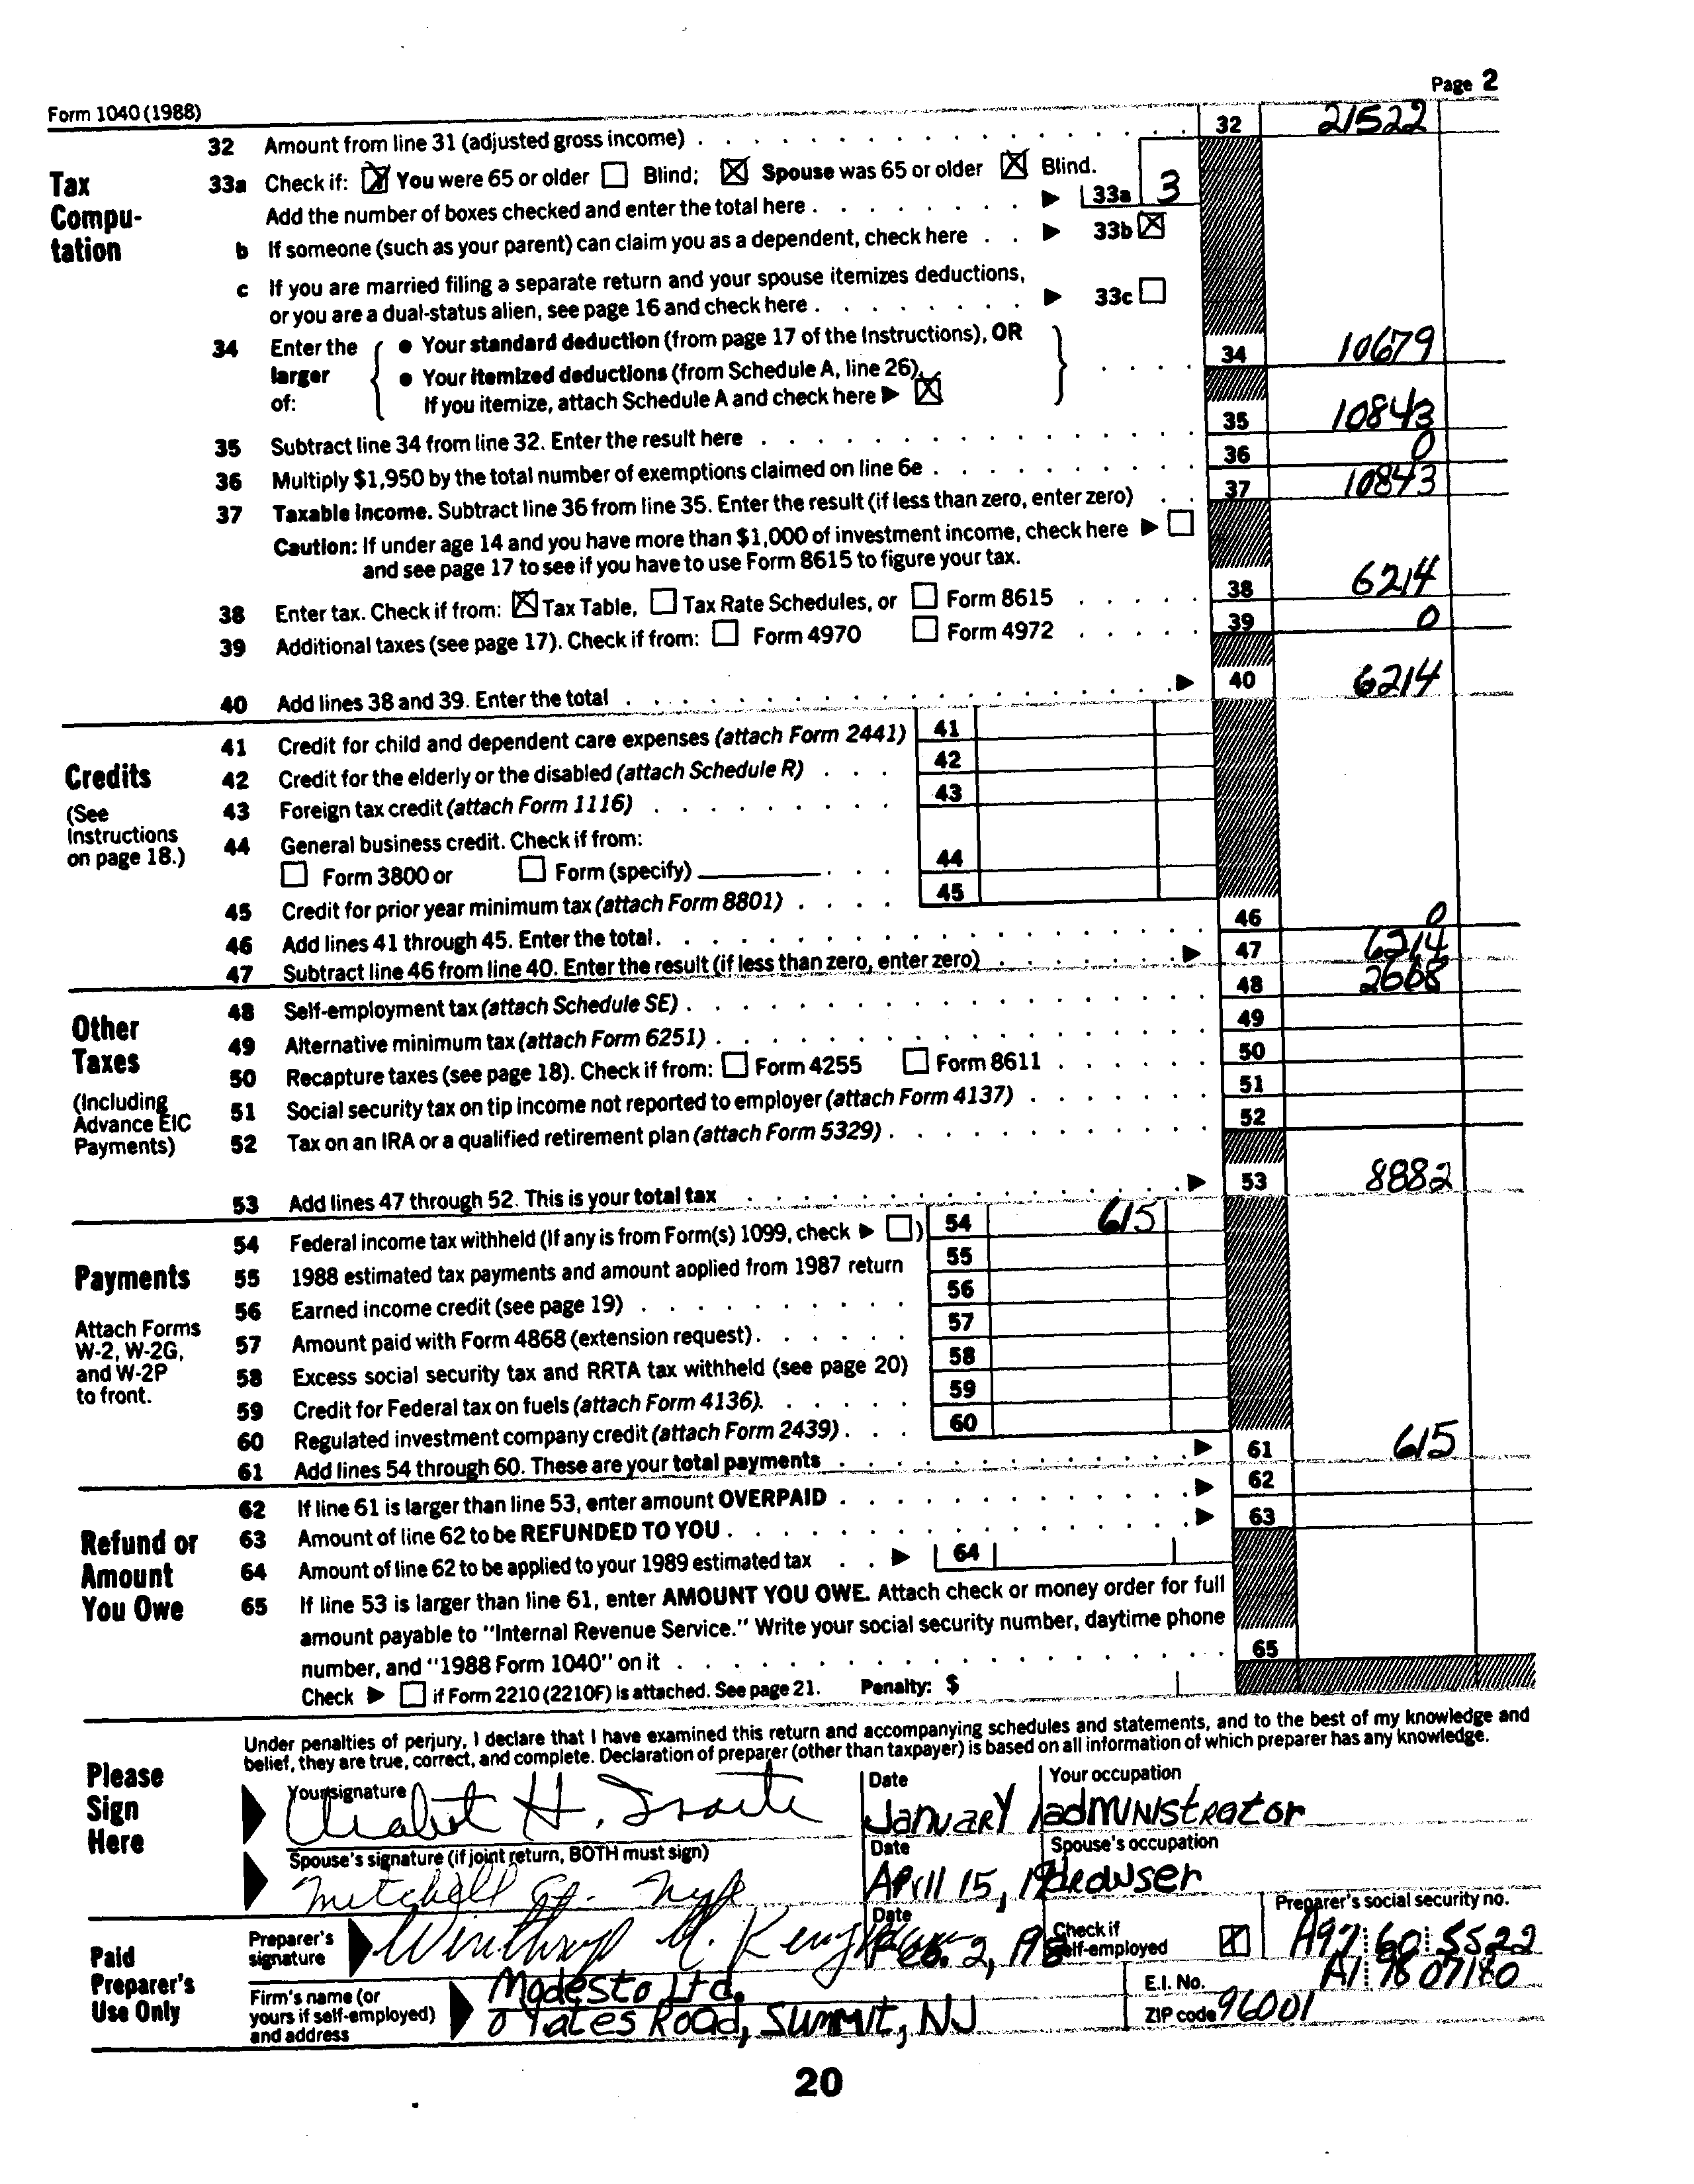 Form 1040 (1988) Page 2
32 Amount from line 31 (adjusted gross income) . . . . . . . . . . 32 21522
Tax Compu- tation
33a Check if: ☒ You were 65 or older ☐ Blind; ☒ Spouse was 65 or older ☒ Blind.
Add the number of boxes checked and enter the total here . . . . . . . . ▶ 33a 3
b If someone (such as your parent) can claim you as a dependent, check here . . ▶ 33b ☒
c If you are married filing a separate return and your spouse itemizes deductions,
or you are a dual-status alien, see page 16 and check here . . . . . . . ▶ 33c ☐
34 Enter the larger of: { ● Your standard deduction (from page 17 of the Instructions), OR
● Your itemized deductions (from Schedule A, line 26).
If you itemize, attach Schedule A and check here ▶ ☒ } . . . . 34 10679
35 Subtract line 34 from line 32. Enter the result here . . . . . . . . 35 10843
36 Multiply $1,950 by the total number of exemptions claimed on line 6e . . . . . . . . 36 0
37 Taxable income. Subtract line 36 from line 35. Enter the result (if less than zero, enter zero) . . 37 10843
Caution: If under age 14 and you have more than $1,000 of investment income, check here ▶ ☐
and see page 17 to see if you have to use Form 8615 to figure your tax.
38 Enter tax. Check if from: ☒ Tax Table, ☐ Tax Rate Schedules, or ☐ Form 8615 . . . . . 38 6214
39 Additional taxes (see page 17). Check if from: ☐ Form 4970 ☐ Form 4972 . . . . . 39 0
40 Add lines 38 and 39. Enter the total . . . . . . . . ▶ 40 6214
Credits
(See Instructions on page 18.)
41 Credit for child and dependent care expenses (attach Form 2441) 41
42 Credit for the elderly or the disabled (attach Schedule R) . . . 42
43 Foreign tax credit (attach Form 1116) . . . . . . . . . 43
44 General business credit. Check if from:
☐ Form 3800 or ☐ Form (specify) . . . 44
45 Credit for prior year minimum tax (attach Form 8801) . . . . 45
46 Add lines 41 through 45. Enter the total. . . . . . . . . 46 0
47 Subtract line 46 from line 40. Enter the result (if less than zero, enter zero) . . . . . . . ▶ 47 6214
Other Taxes
(Including Advance EIC Payments)
48 Self-employment tax (attach Schedule SE) . . . . . . . . 48 2668
49 Alternative minimum tax (attach Form 6251) . . . . . . . . 49
50 Recapture taxes (see page 18). Check if from: ☐ Form 4255 ☐ Form 8611 . . . . . . 50
51 Social security tax on tip income not reported to employer (attach Form 4137) . . . . . . . 51
52 Tax on an IRA or a qualified retirement plan (attach Form 5329) . . . . . . . . 52
53 Add lines 47 through 52. This is your total tax . . . . . . . . ▶ 53 8882
Payments
Attach Forms W-2, W-2G, and W-2P to front.
54 Federal income tax withheld (If any is from Form(s) 1099, check ▶ ☐) 54 615
55 1988 estimated tax payments and amount applied from 1987 return 55
56 Earned income credit (see page 19) . . . . . . . . . 56
57 Amount paid with Form 4868 (extension request) . . . . . . 57
58 Excess social security tax and RRTA tax withheld (see page 20) 58
59 Credit for Federal tax on fuels (attach Form 4136). . . . . . 59
60 Regulated investment company credit (attach Form 2439) . . . 60
61 Add lines 54 through 60. These are your total payments . . . . . . . . ▶ 61 615
Refund or Amount You Owe
62 If line 61 is larger than line 53, enter amount OVERPAID . . . . . . . . ▶ 62
63 Amount of line 62 to be REFUNDED TO YOU . . . . . . . . ▶ 63
64 Amount of line 62 to be applied to your 1989 estimated tax . . ▶ 64
65 If line 53 is larger than line 61, enter AMOUNT YOU OWE. Attach check or money order for full
amount payable to "Internal Revenue Service." Write your social security number, daytime phone
number, and "1988 Form 1040" on it . . . . . . . . 65
Check ▶ ☐ if Form 2210 (2210F) is attached. See page 21. Penalty: $
Please Sign Here
Under penalties of perjury, I declare that I have examined this return and accompanying schedules and statements, and to the best of my knowledge and
belief, they are true, correct, and complete. Declaration of preparer (other than taxpayer) is based on all information of which preparer has any knowledge.
Your signature H. Date January Your occupation administrator
Spouse's signature (if joint return, BOTH must sign) Mitchell Date April 15, Spouse's occupation
Paid Preparer's Use Only
Preparer's signature Winthrop M. Date 2, Check if self-employed ☒ Preparer's social security no. A97 60 5522
Firm's name (or yours if self-employed) and address Modesto Ltd. E.I. No. A1 9807180
Yates Road, Summit, NJ ZIP code 96001
20